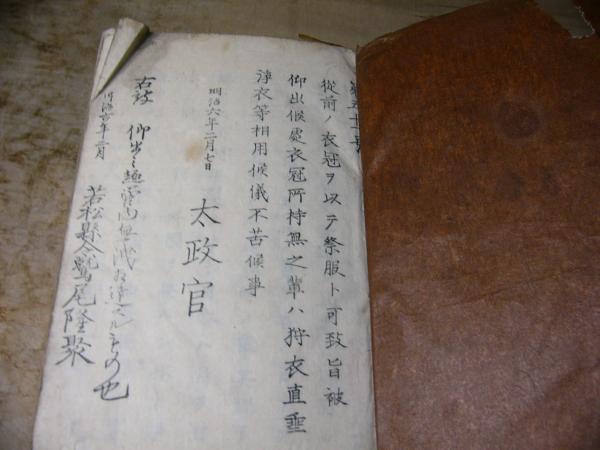 第五十一号
從前ノ衣冠ヲ以テ祭服ト可致旨被
仰出候處衣冠所持無之輩ハ狩衣直垂
淨衣等相用候儀不苦候事
明治六年二月七日
太政官
右之
仰出之趣管内無洩相達スルもの也
明治六年二月
若松縣令鷲尾隆聚